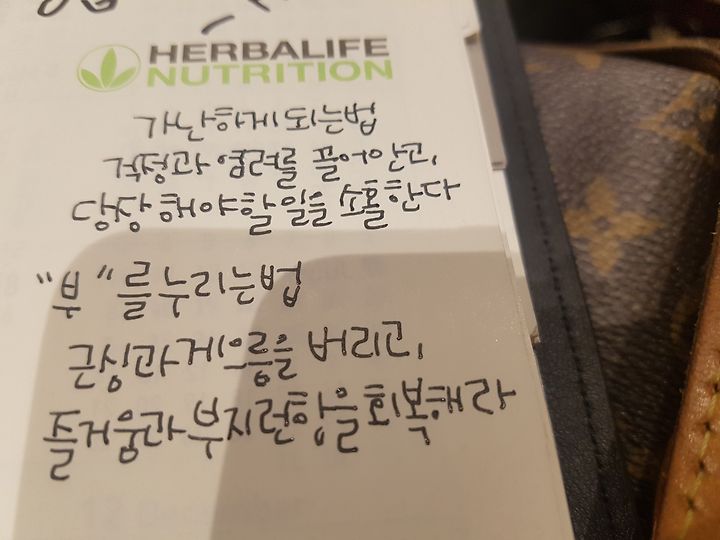 HERBALIFE
NUTRITION
가난하게 되는법
걱정과 염려를 끌어안고,
당장 해야할 일을 소홀한다
"부"를 누리는법
근심과 게으름을 버리고,
즐거움과 부지런함을 회복해라